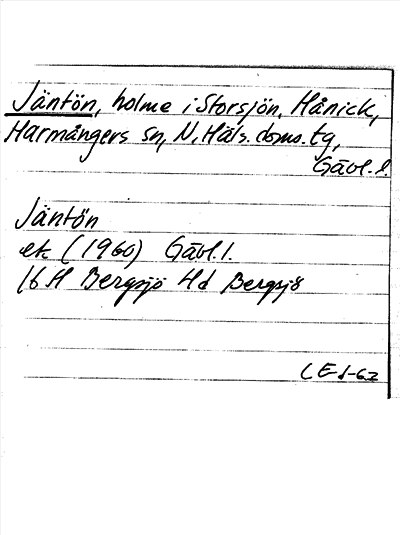 Jäntön, holme i Storsjön, Hånick,
Harmångers sn, N. Häls. doms. tg,
Gävl. l.
Jäntön
ek (1960) Gävl. l.
16 H Bergsjö Hd Bergsjö
LE-1-62